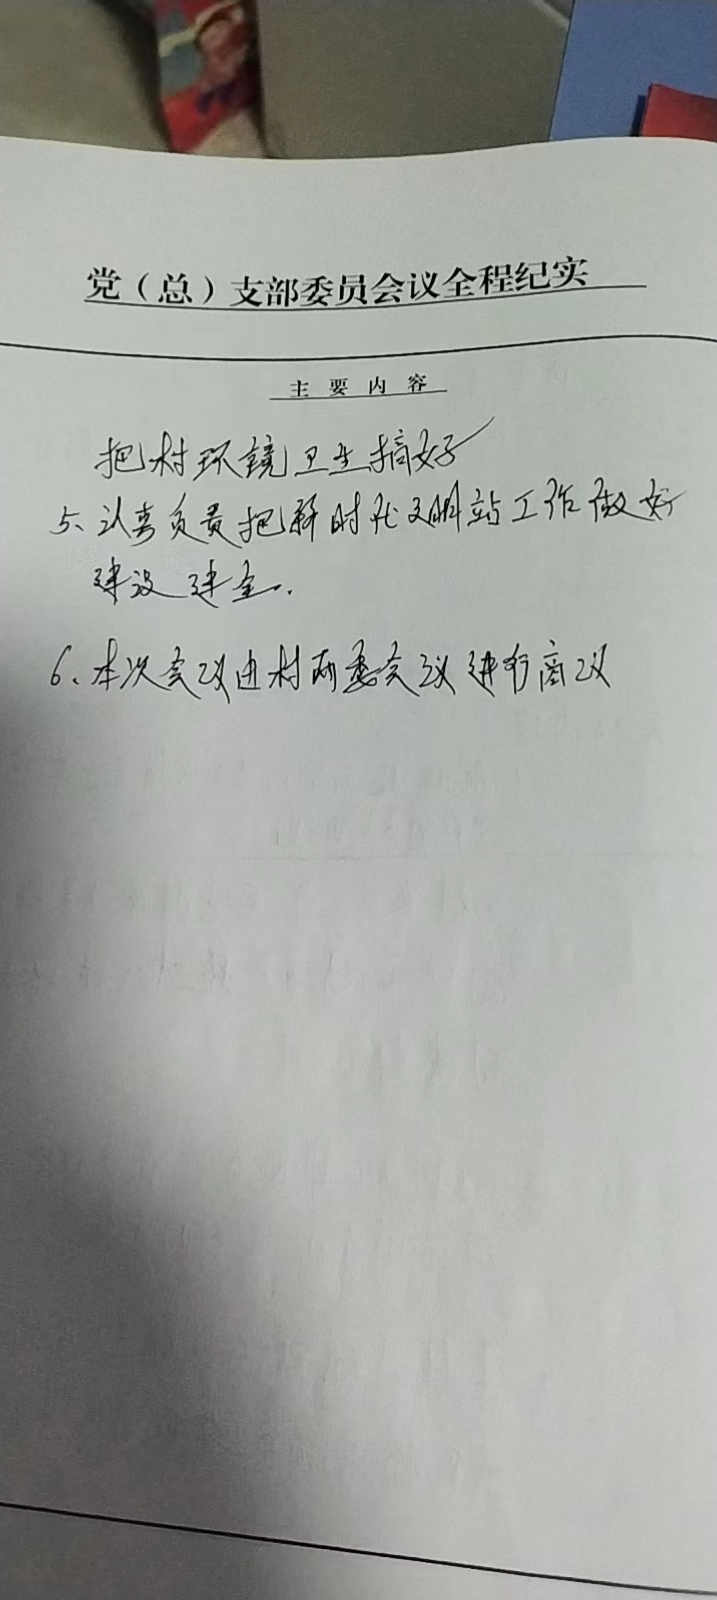 党（总）支部委员会议全程纪实
主要内容
把村环镜卫生搞好
5、认真负责把新时代文明站工作做好
建设建全.
6、本次会议由村两委会议进行商议